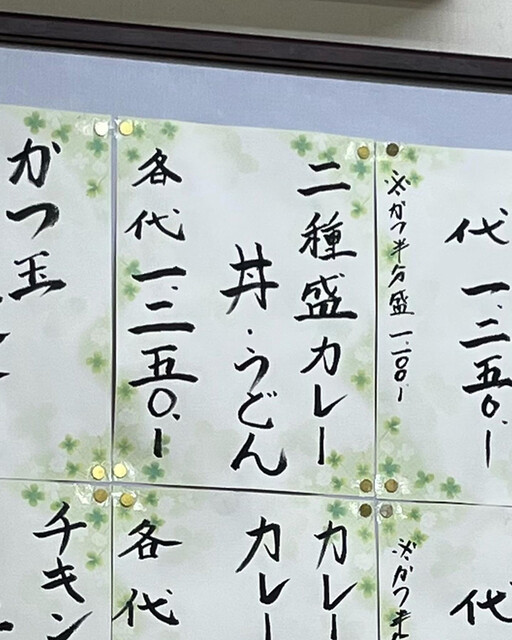 代 一、二五〇、ー
※かつ半分盛 一、一〇〇、ー
二種盛カレー
丼・うどん
各代 一、二五〇、ー
かつ玉
代
※かつ半
カレー
カレー
各代
チキン